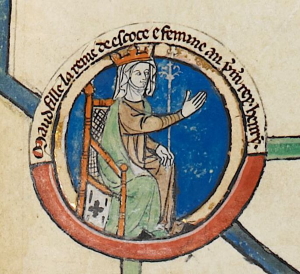 Maud fille la reine de escoce e femme au p'm' roy henry.